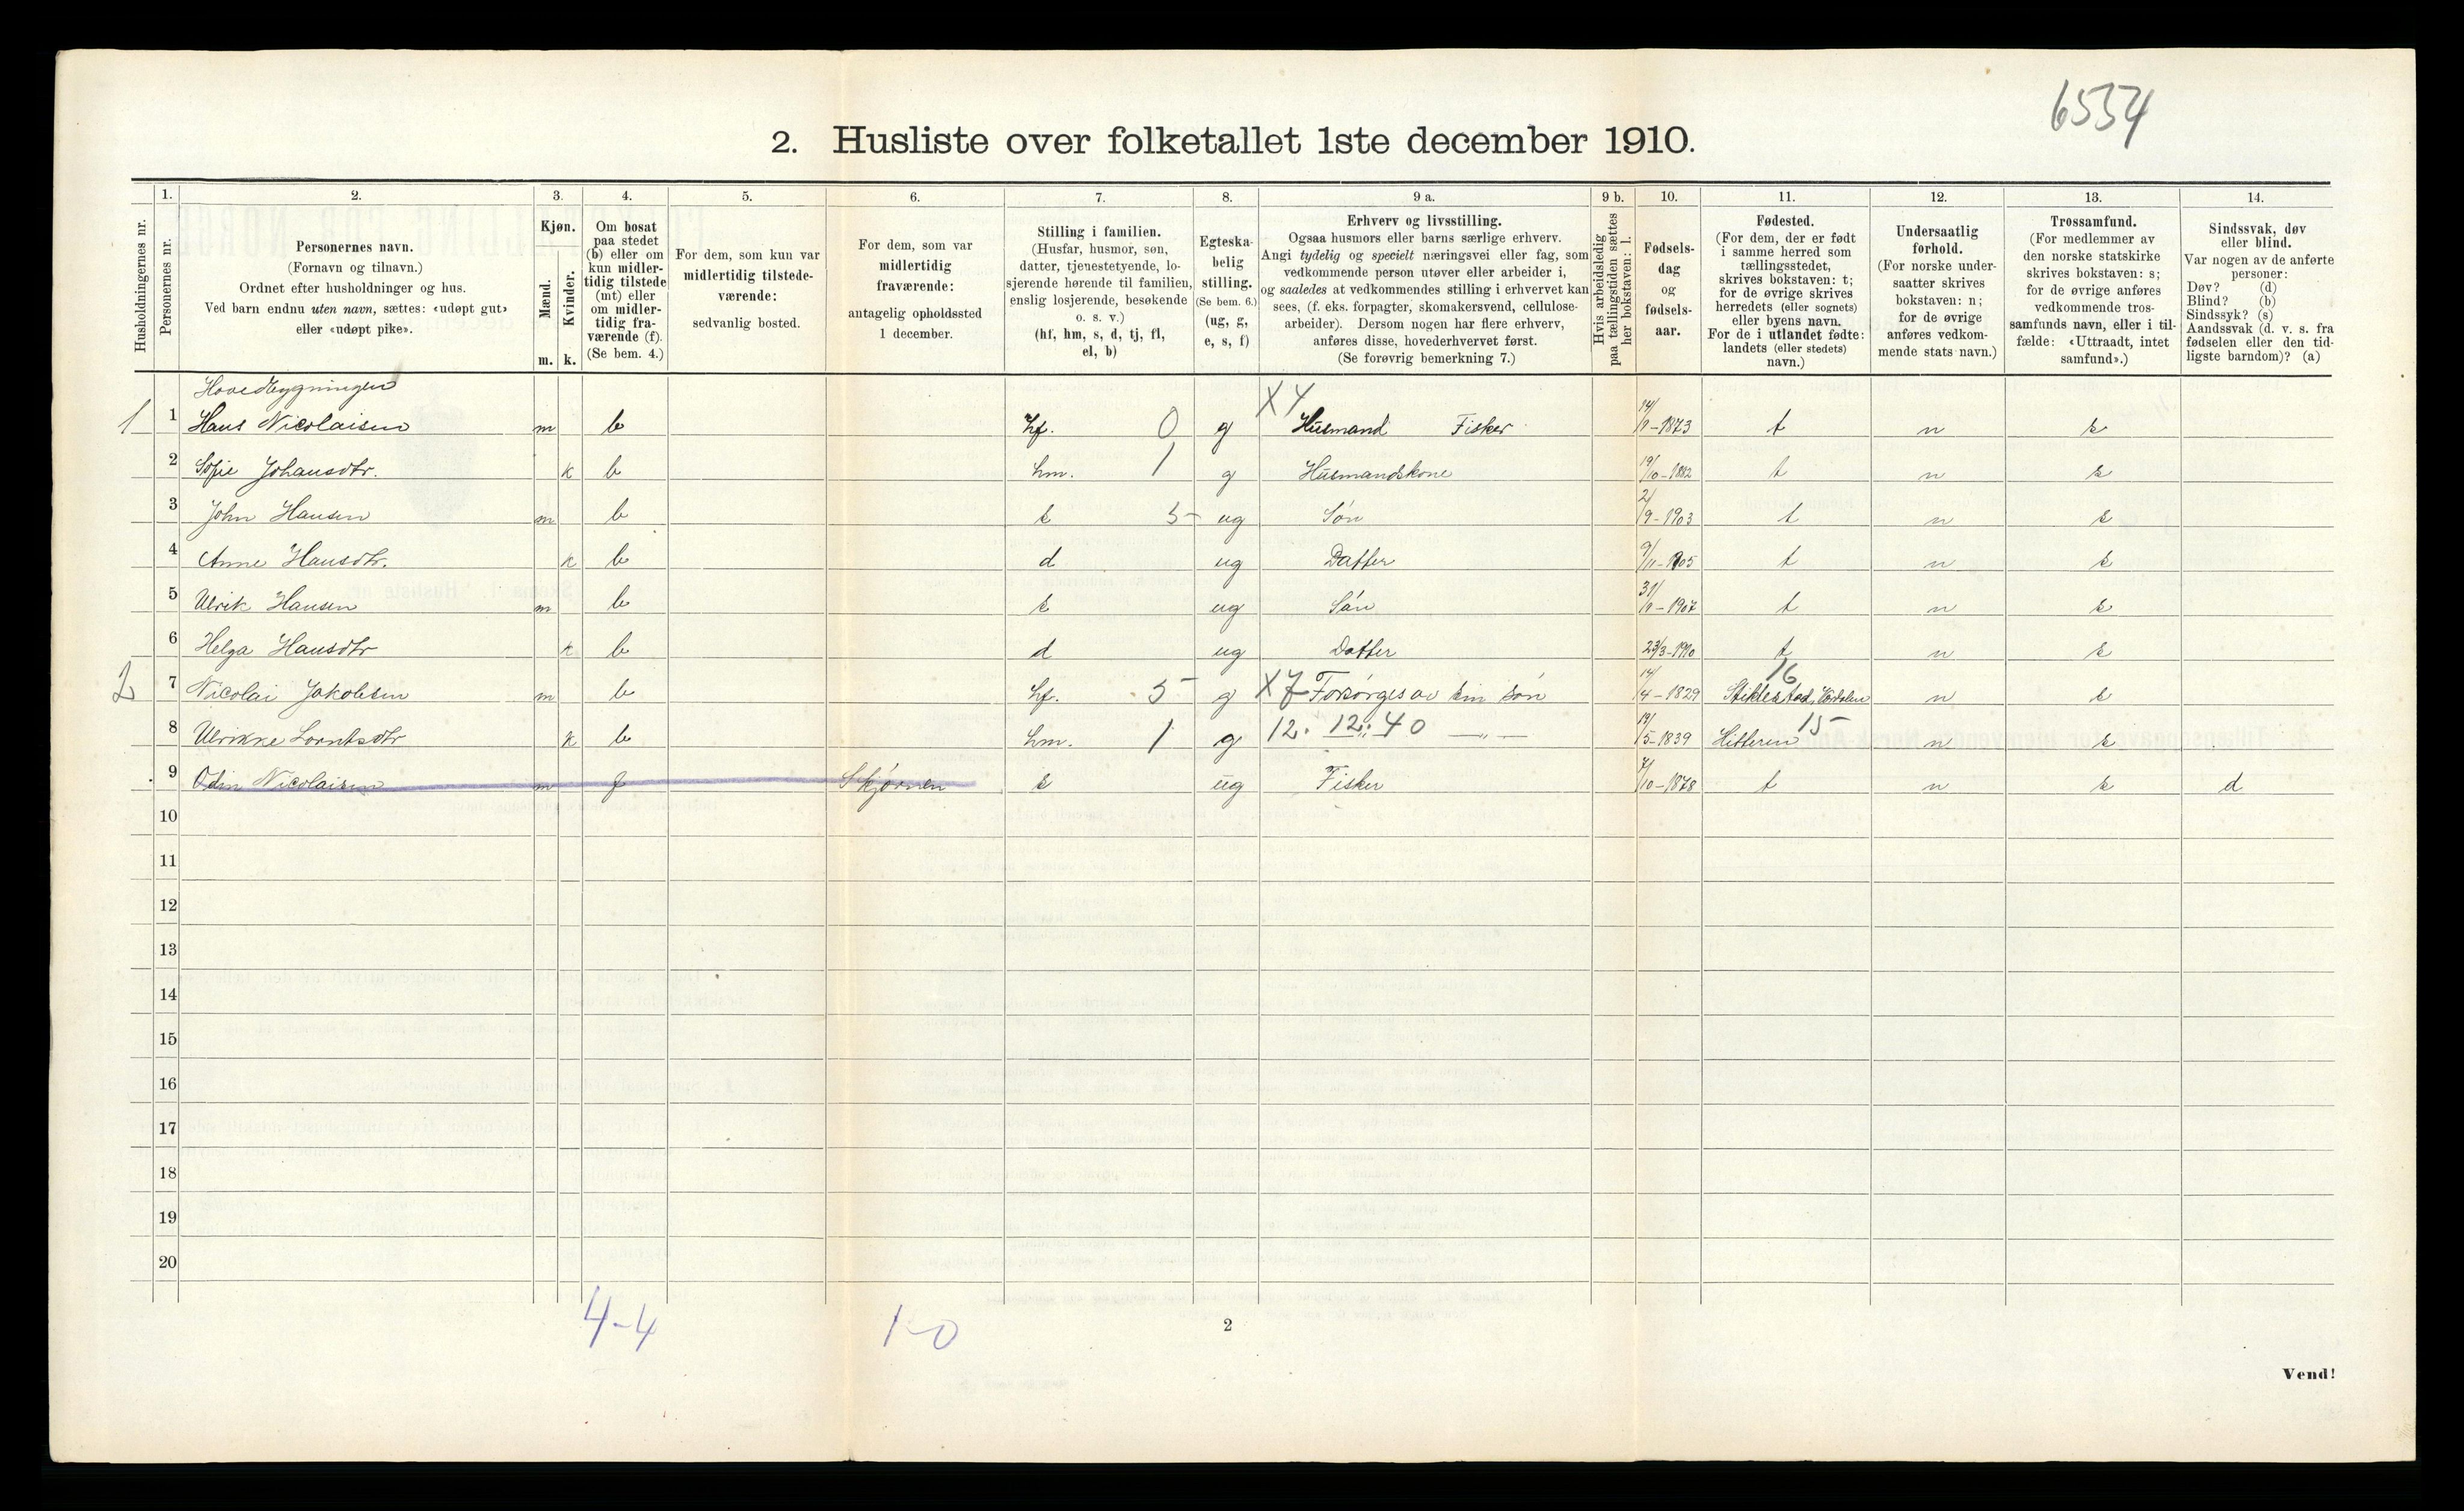 6554
2. Husliste over folketallet 1ste december 1910.
Husholdningernes nr.
1. Personernes nr.
2. Personernes navn. (Fornavn og tilnavn.) Ordnet efter husholdninger og hus. Ved barn endnu uten navn, sættes: «udøpt gut» eller «udøpt pike».
3. Kjøn. Mænd. m. Kvinder. k.
4. Om bosat paa stedet (b) eller om kun midlertidig tilstede (mt) eller om midlertidig fraværende (f). (Se bem. 4.)
5. For dem, som kun var midlertidig tilstedeværende: sedvanlig bosted.
6. For dem, som var midlertidig fraværende: antagelig opholdssted 1 december.
7. Stilling i familien. (Husfar, husmor, søn, datter, tjenestetyende, losjerende hørende til familien, enslig losjerende, besøkende o. s. v.) (hf, hm, s, d, tj, fl, el, b)
8. Egteskabelig stilling. (Se bem. 6.) (ug, g, e, s, f)
9 a. Erhverv og livsstilling. Ogsaa husmors eller barns særlige erhverv. Angi tydelig og specielt næringsvei eller fag, som vedkommende person utøver eller arbeider i, og saaledes at vedkommendes stilling i erhvervet kan sees, (f. eks. forpagter, skomakersvend, cellulosearbeider). Dersom nogen har flere erhverv, anføres disse, hovederhvervet først. (Se forøvrig bemerkning 7.)
9 b. Hvis arbeidsledig paa tællingstiden sættes her bokstaven: l.
10. Fødselsdag og fødselsaar.
11. Fødested. (For dem, der er født i samme herred som tællingsstedet, skrives bokstaven: t; for de øvrige skrives herredets (eller sognets) eller byens navn. For de i utlandet fødte: landets (eller stedets) navn.)
12. Undersaatlig forhold. (For norske undersaatter skrives bokstaven: n; for de øvrige anføres vedkommende stats navn.)
13. Trossamfund. (For medlemmer av den norske statskirke skrives bokstaven: s; for de øvrige anføres vedkommende trossamfunds navn, eller i tilfælde: «Uttraadt, intet samfund».)
14. Sindssvak, døv eller blind. Var nogen av de anførte personer: Døv? (d) Blind? (b) Sindssyk? (s) Aandssvak (d. v. s. fra fødselen eller den tidligste barndom)? (a)
Hovedbygningen
1 1 Hans Nicolaisen m b hf. 0 g X4 Husmand Fisker 14/9-1873 t n s
2 Sofie Johansdtr. k b hm. 1 g Husmandskone 19/10-1882 t n s
3 John Hansen m b s 5 ug Søn 2/9-1903 t n s
4 Anne Hansdtr. k b d ug Datter 9/11-1905 t n s
5 Ulrik Hansen m b s ug Søn 31/-1907 t n s
6 Helga Hansdtr k b d ug Datter 23/3-1910 t n s
2 7 Nicolai Jakobsen m b hf. 5 g X7 Forsørges av sin søn 14/4-1829 Stiklestad, Værdalen 16 n s
8 Ulrikke Lorntsdtr k b hm. 1 g 12. 12: 40 — „ — 19/5-1839 Hitteren 15 n s
9 Odin Nicolaisen m f Skjørnen s ug Fisker 7/10-1878 t n s d
10
11
12
13
14
15
16
17
18
19
20
4-4 1-0
2
Vend!